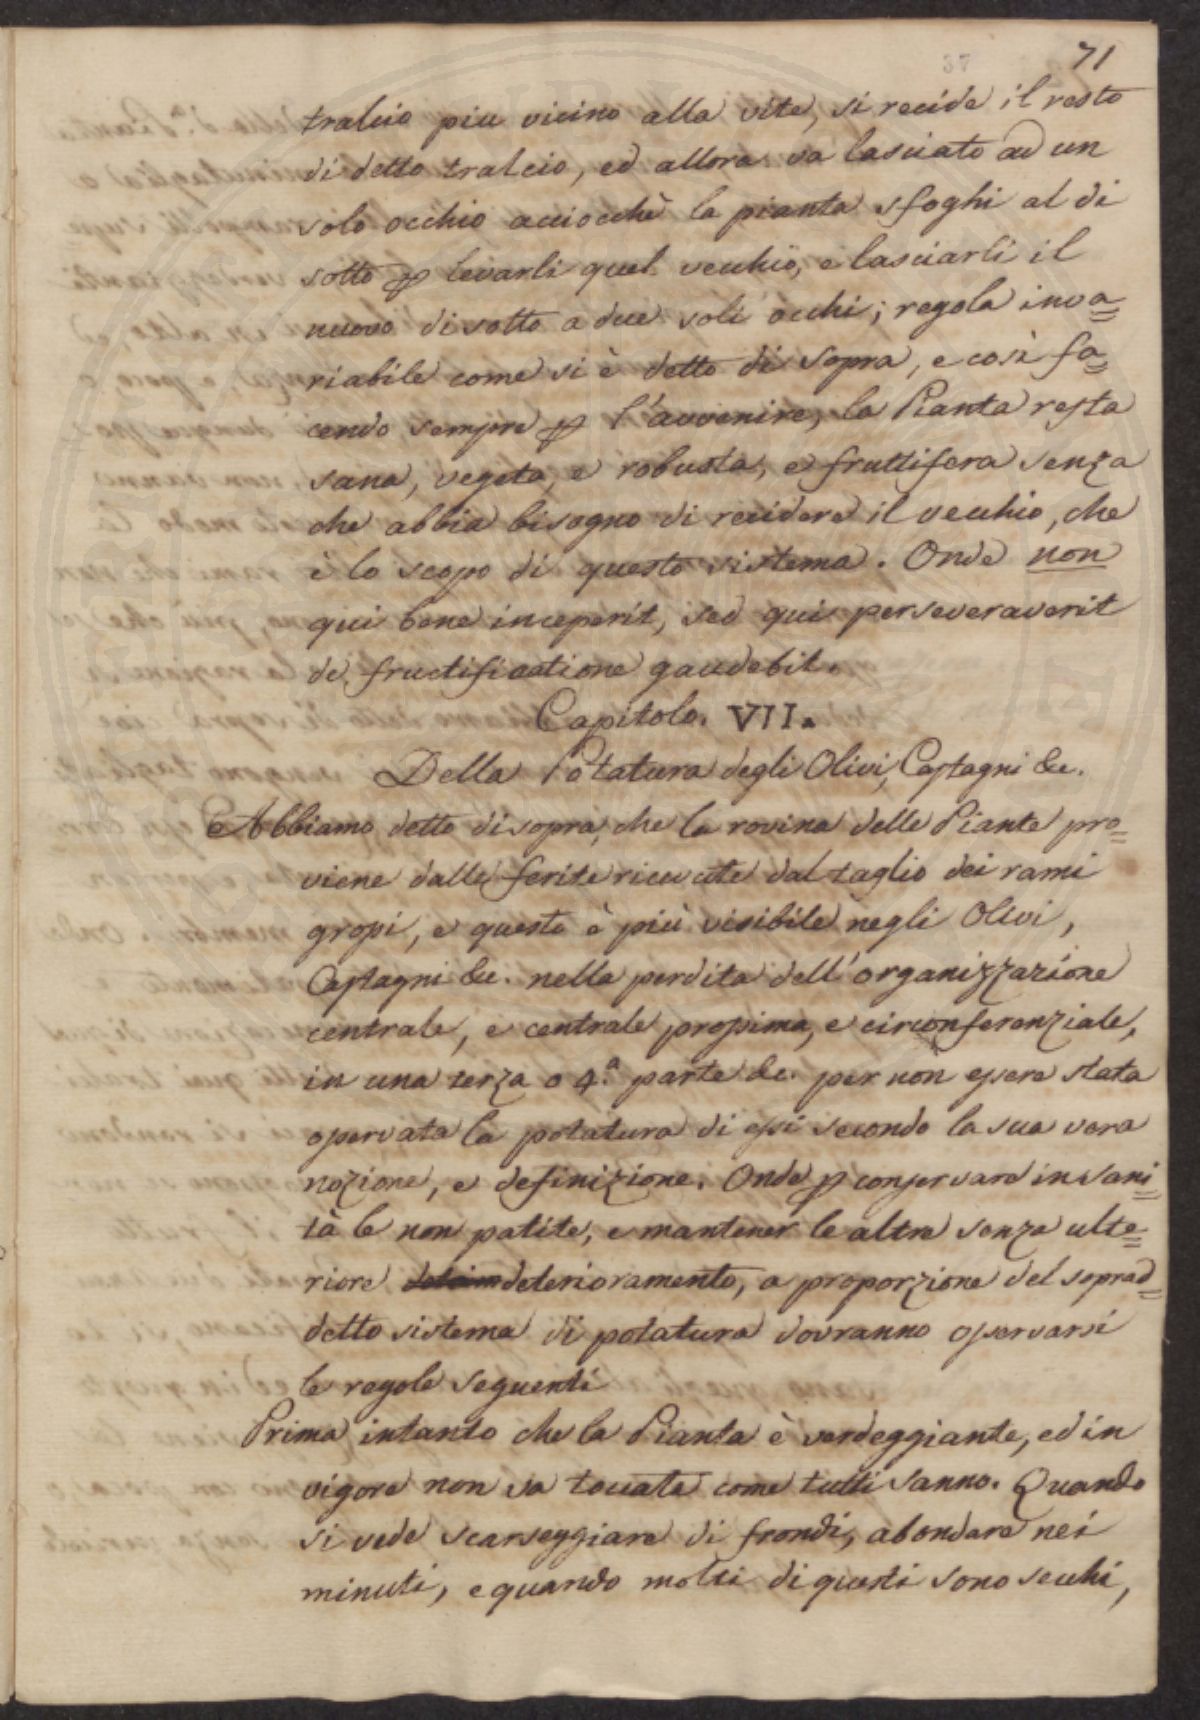 37
71
tralcio piu vicino alla vite, si recide il resto
di detto tralcio, ed allora va lasciato ad un
solo occhio acciocchè la pianta sfoghi al di
sotto p levarli quel vecchio, e lasciarli il
nuovo di sotto a due soli occhi; regola inva=
riabile come si è detto di sopra, e così fa=
cendo sempre p l'avvenire, la Pianta resta
sana, vegeta, e robusta, e fruttifera senza
che abbia bisogno di recidere il vecchio, che
è lo scopo di questo sistema. Onde non
qui bene inceperit, sed qui perseveraverit
de fructificatione gaudebit.
Capitolo. VII.
Della Potatura degli Olivi, Castagni &c.
Abbiamo detto di sopra, che la rovina delle Piante pro=
viene dalle ferite ricevute dal taglio dei rami
grossi, e questo è più visibile negli Olivi,
Castagni &c. nella perdita dell'organizzazione
centrale, e centrale prossima, e circonferenziale,
in una terza o 4.a parte &c. per non essere stata
osservata la potatura di essi secondo la sua vera
nozione, e definizione. Onde p conservare in sani=
tà le non patite, e mantener le altre senza ulte=
riore deterioramento, a proporzione del soprad=
detto sistema di potatura dovranno osservarsi
le regole seguenti
Prima intanto che la Pianta è verdeggiante, ed in
vigore non va toccata come tutti sanno. Quando
si vede scarseggiare di frondi, abondare nei
minuti, e quando molti di questi sono secchi,